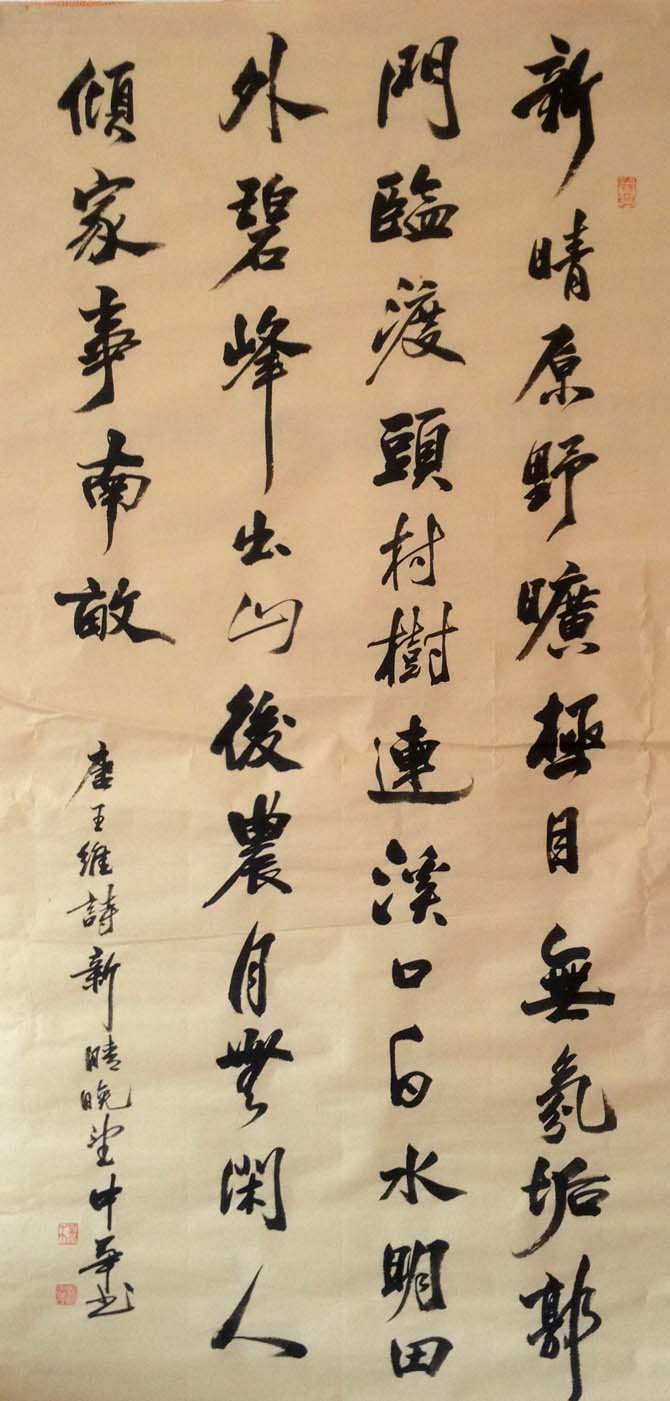 新晴原野曠極目無氛垢郭
門臨渡頭村樹連溪口白水明田
外碧峰出山後農月無閑人
傾家事南畝
唐王維詩新晴晚望中華书